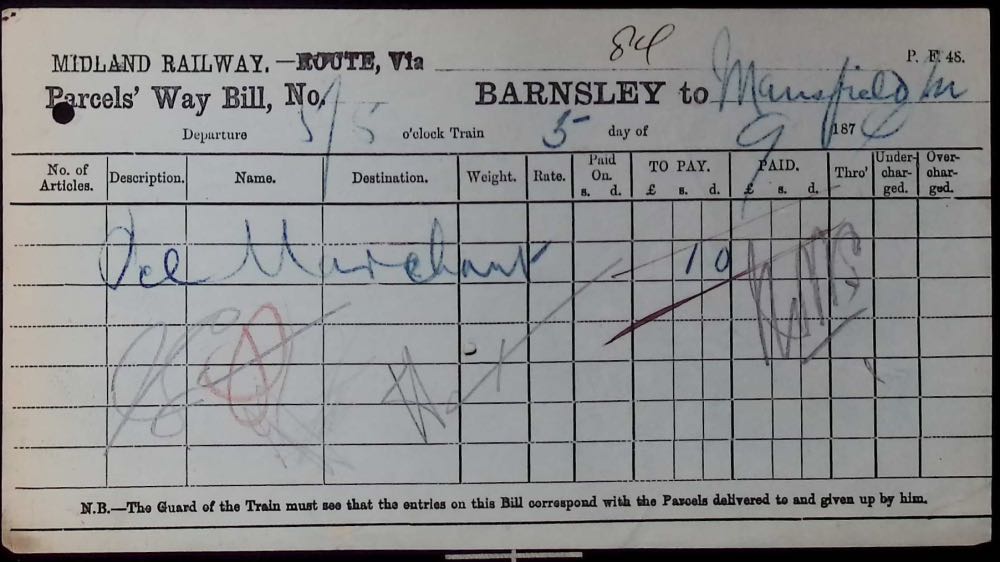 84
MIDLAND RAILWAY.—ROUTE, Via P. F. 48.
Parcels' Way Bill, No. BARNSLEY to Mansfield
Departure 5/5 o'clock Train 5 day of 9 187
No. of Articles. Description. Name. Destination. Weight. Rate. Paid On. s. d. TO PAY. £ s. d. PAID. £ s. d. Thro' Under-char-ged. Over-char-ged.
Merchant 1 0
N.B.—The Guard of the Train must see that the entries on this Bill correspond with the Parcels delivered to and given up by him.